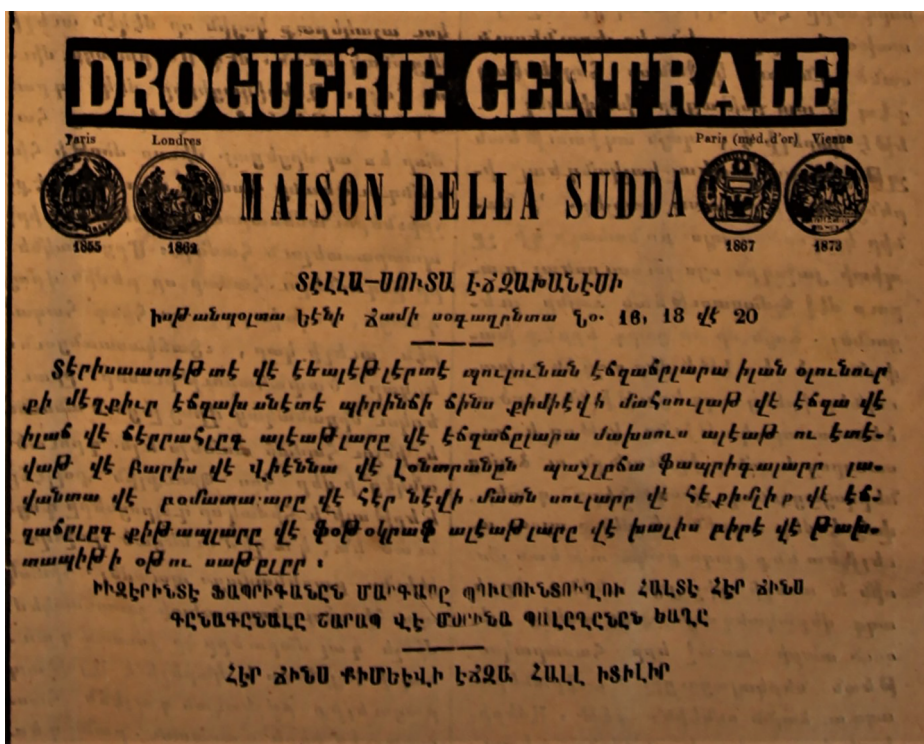 DROGUERIE CENTRALE
Paris Londres Paris (méd. d'or) Vienne
MAISON DELLA SUDDA
1855 1862 1867 1873
ՏԷԼԼԱ-ՍՈՒՏԱ ԷՃԶԱԽԱՆԷՍԻ
Իսթանպօլտա Եէնի Ճամի սօգաղընտա Նօ. 16, 18 վէ 20
Տէրիսաատէթտէ վէ էեալէթլէրտէ պուլունան էճզաճըլարա իլան օլունուր
քի մէզքիւր էճզախանէտէ պիրինճի ճինս քիմիէվի մահսուլաթ վէ էճզա վէ
իլաճ վէ ճէրրահլըգ ալէաթլարը վէ էճզաճըլարա մախսուս ալէաթ ու էտէ-
վաթ վէ Բարիս վէ Վիէննա վէ Լօնտրանըն պաշլըճա ֆապրիգալարը լա-
վանտա վէ վէ հէր նէվի մատն սուլարը վէ հէքիմլիք վէ էճ-
զաճըլըգ քիթապլարը վէ ֆօթօկրաֆ ալէաթլարը վէ խալիս բիրէ վէ թախ-
տապիթի օթու սաթըլըր ։
ԻՒԶԷՐԻՆՏԷ ՖԱՊՐԻԳԱՆԸՆ ՄԱՐԳԱՐԸ ՊՈՒԼՈՒՆՏՈՒՂՈՒ ՀԱԼՏԷ ՀԷՐ ՃԻՆՍ
ԳԸՆԱԳԸՆԱԼԸ ՇԱՐԱՊ ՎԷ ՄՕՐԻՆԱ ՊԱԼԸՂԸՆԸՆ ԵԱՂԸ
ՀԷՐ ՃԻՆՍ ՔԻՄԵԷՎԻ ԷՃԶԱ ՀԱԼԼ ԻՏԻԼԻՐ